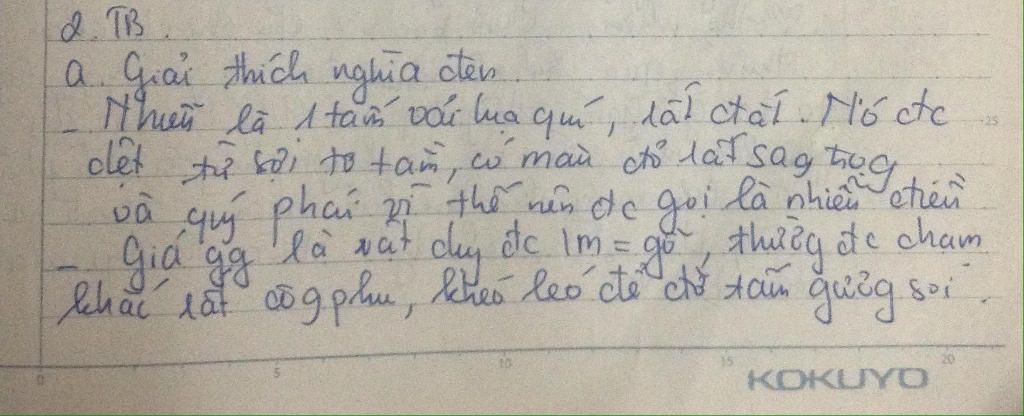 2. TB.
a. Giải thích nghĩa đen
- Nhiễu là 1 tấm vải lụa quí, rất đắt. Nó đc
dệt từ sợi tơ tằm, có màu đỏ rất sag trọg
và quý phái vì thế nên đc gọi là nhiễu điều
- Giá gg là vật dụg đc lm = gỗ, thườg đc chạm
khắc rất côg phu, khéo léo để đỡ tấm gươg soi.
25
0 5 10 15 20
KOKUYO